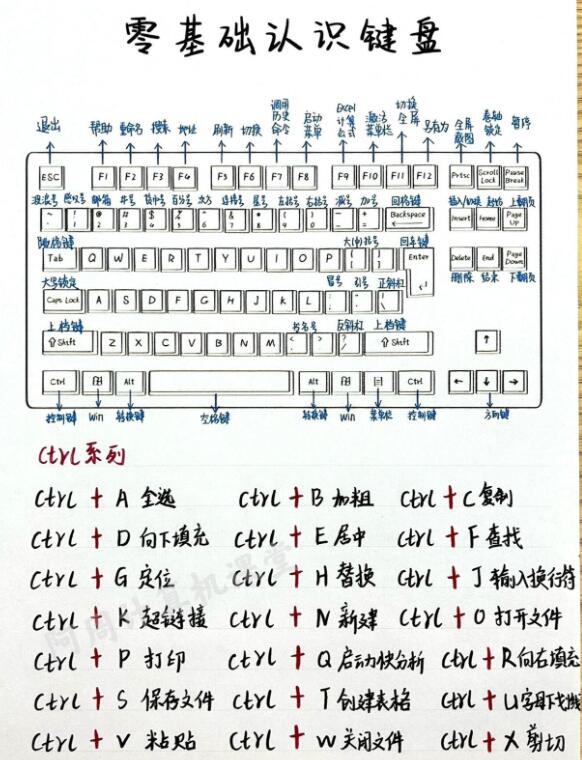 零基础认识键盘
调用 Excel 切换
退出 帮助 重命名 搜索 地址 刷新 切换 历史命令 启动菜单 计算公式 激活菜单栏 全屏 另存为 全屏截图 卷轴锁定 暂停
ESC F1 F2 F3 F4 F5 F6 F7 F8 F9 F10 F11 F12 Prtsc Scroll Lock Pause Break
波浪号 感叹号 邮箱 井号 货币号 百分号 次方 连接号 星号 左括号 右括号 减号 加号 回格键 插入/切换 起始 上翻页
~ ` ! 1 @ 2 # 3 $ 4 % 5 ^ 6 & 7 * 8 ( 9 ) 0 - + = Backspace Insert Home Page Up
Tab Q W E R T Y U I O P { [ } ] Enter Delete End Page Down
大写锁定 冒号 引号 正斜杠 删除 结束 下翻页
Caps Lock A S D F G H J K L
上档键 书名号 反斜杠 上档键
⇧Shift Z X C V B N M < > ? / ⇧Shift ↑
Ctrl Alt Alt Ctrl ← ↓ →
控制键 Win 转换键 空格键 转换键 Win 菜单栏 控制键 方向键
Ctrl系列
Ctrl + A 全选 Ctrl + B 加粗 Ctrl + C 复制
Ctrl + D 向下填充 Ctrl + E 居中 Ctrl + F 查找
Ctrl + G 定位 Ctrl + H 替换 Ctrl + J 输入换行符
Ctrl + K 超链接 Ctrl + N 新建 Ctrl + O 打开文件
Ctrl + P 打印 Ctrl + Q 启动快分析 Ctrl + R 向右填充
Ctrl + S 保存文件 Ctrl + T 创建表格 Ctrl + U 字母下划线
Ctrl + V 粘贴 Ctrl + W 关闭文件 Ctrl + X 剪切
阿周计算机课堂